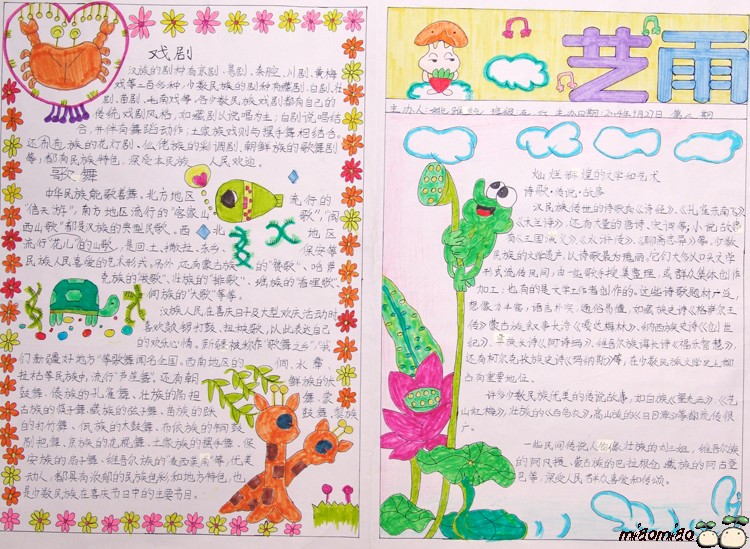 戏剧
汉族的剧种有京剧、晋剧、秦腔、川剧、黄梅
戏等三百多种,少数民族的剧种有藏剧、白剧、壮
剧、苗剧、毛南戏等。各少数民族戏剧都有自己的
传统戏剧风格,如藏剧以说唱为主;白剧说唱结
合,并伴有舞蹈动作;土家族戏则与摆手舞相结合。
还有壮族的花灯剧、仫佬族的彩调剧、朝鲜族的歌舞剧
等,都有民族特色,深受本民族人民欢迎。
歌舞
中华民族能歌善舞。北方地区流行的
"信天游",南方地区流行的"客家山歌","闽
西山歌"都是汉族的典型民歌。西北地区
流行"花儿"的山歌,是回、土、撒拉、东乡、保安等
民族人民喜爱的艺术形式。另外还有蒙古族的"赞歌"、哈萨
克族的"牧歌"、壮族的"排歌"、瑶族的"香哩歌"
侗族的"大歌"等等。
汉族人民在喜庆日子及大型欢庆活动时
喜欢鼓锣打鼓、扭秧歌,以此表达自己
的欢快心情。新疆被称作"歌舞之乡","我
们新疆好地方"等歌舞闻名全国。西南地区的
拉祜等民族中,流行"芦笙舞"。还有朝鲜族的
鼓舞、傣族的孔雀舞、壮族的扁担舞、蒙
古族的筷子舞、藏族的弦子舞、苗族的跳鼓舞、黎族
的打竹舞、佤族的木鼓舞、布依族的铜鼓
刷把舞、京族的花棍舞、土家族的摆手舞、保
安族的扇子舞、维吾尔族的"麦西莱甫"等,优美
动人,都具有浓郁的民族色彩和地方特色,也
是少数民族在喜庆节日中的主要节目。
芝雨
主办人: 班级: 主办日期:2014年1月27日 第 期
灿烂辉煌的文学和艺术
诗歌·传说·故事
汉民族传世的诗歌有《诗经》、《孔雀东南飞》
《木兰诗》,还有大量的唐诗、宋词等;小说故事
有《三国演义》、《水浒传》、《聊斋志异》等。少数
民族的文学遗产,以诗歌最为瑰丽,它们大多以口头文学
形式流传民间,由一些歌手搜集整理,或群众集体创作
加工;也有的是文学工作者创作的。这些诗歌题材广泛,
想像力丰富,语言朴实、通俗易懂,如藏族史诗《格萨尔王
传》蒙古族叙事长诗《嘎达梅林》、纳西族史诗《创世
纪》、彝族史诗《阿诗玛》、维吾尔族诗长诗《福乐智慧》、
还有柯尔克孜族史诗《玛纳斯》等,在少数民族文学史上都
占有重要地位。
许多少数民族优美的传说故事,如白族《望夫云》、《苍
山红梅》,壮族的《白鸟衣》,高山族的《日月潭》等都流传很
广。
一些民间传说人物像壮族的刘三姐,维吾尔族
的阿凡提、蒙古族的巴拉根仓、藏族的阿古登
巴等,深受人民群众喜爱和传颂。
miaomiao